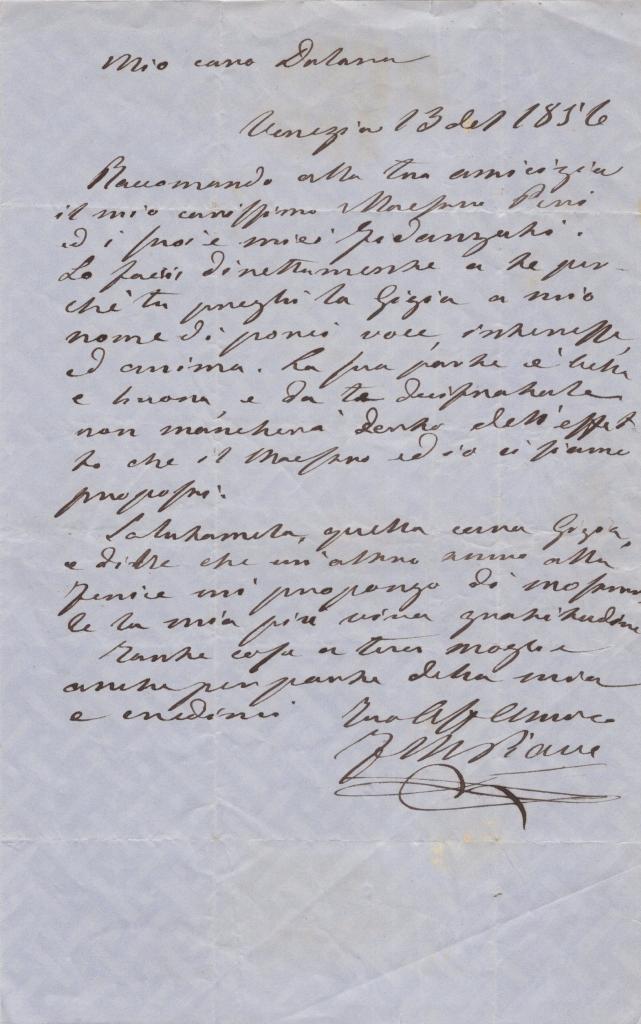 Mio caro Dalara
Venezia 13 del 1856
Raccomando alla tua amicizia
il mio carissimo Maestro Peri
ed i suoi e miei Fidanzati.
Lo faccio direttamente a te per
chè tu preghi la Gigia a mio
nome di porvi voce, interesse,
ed anima. La sua parte è bella
e buona e da te
non mancherà certo dell'effet
to che il Maestro ed io ci siamo
proposti.
Salutamela, quella cara Gigia,
e dille che un'altro anno alla
Fenice mi propongo di mostrar
le la mia più viva gratitudine
Tante cose a tua moglie
anche per parte della mia
e credimi Tuo Aff Amico
F M Piave